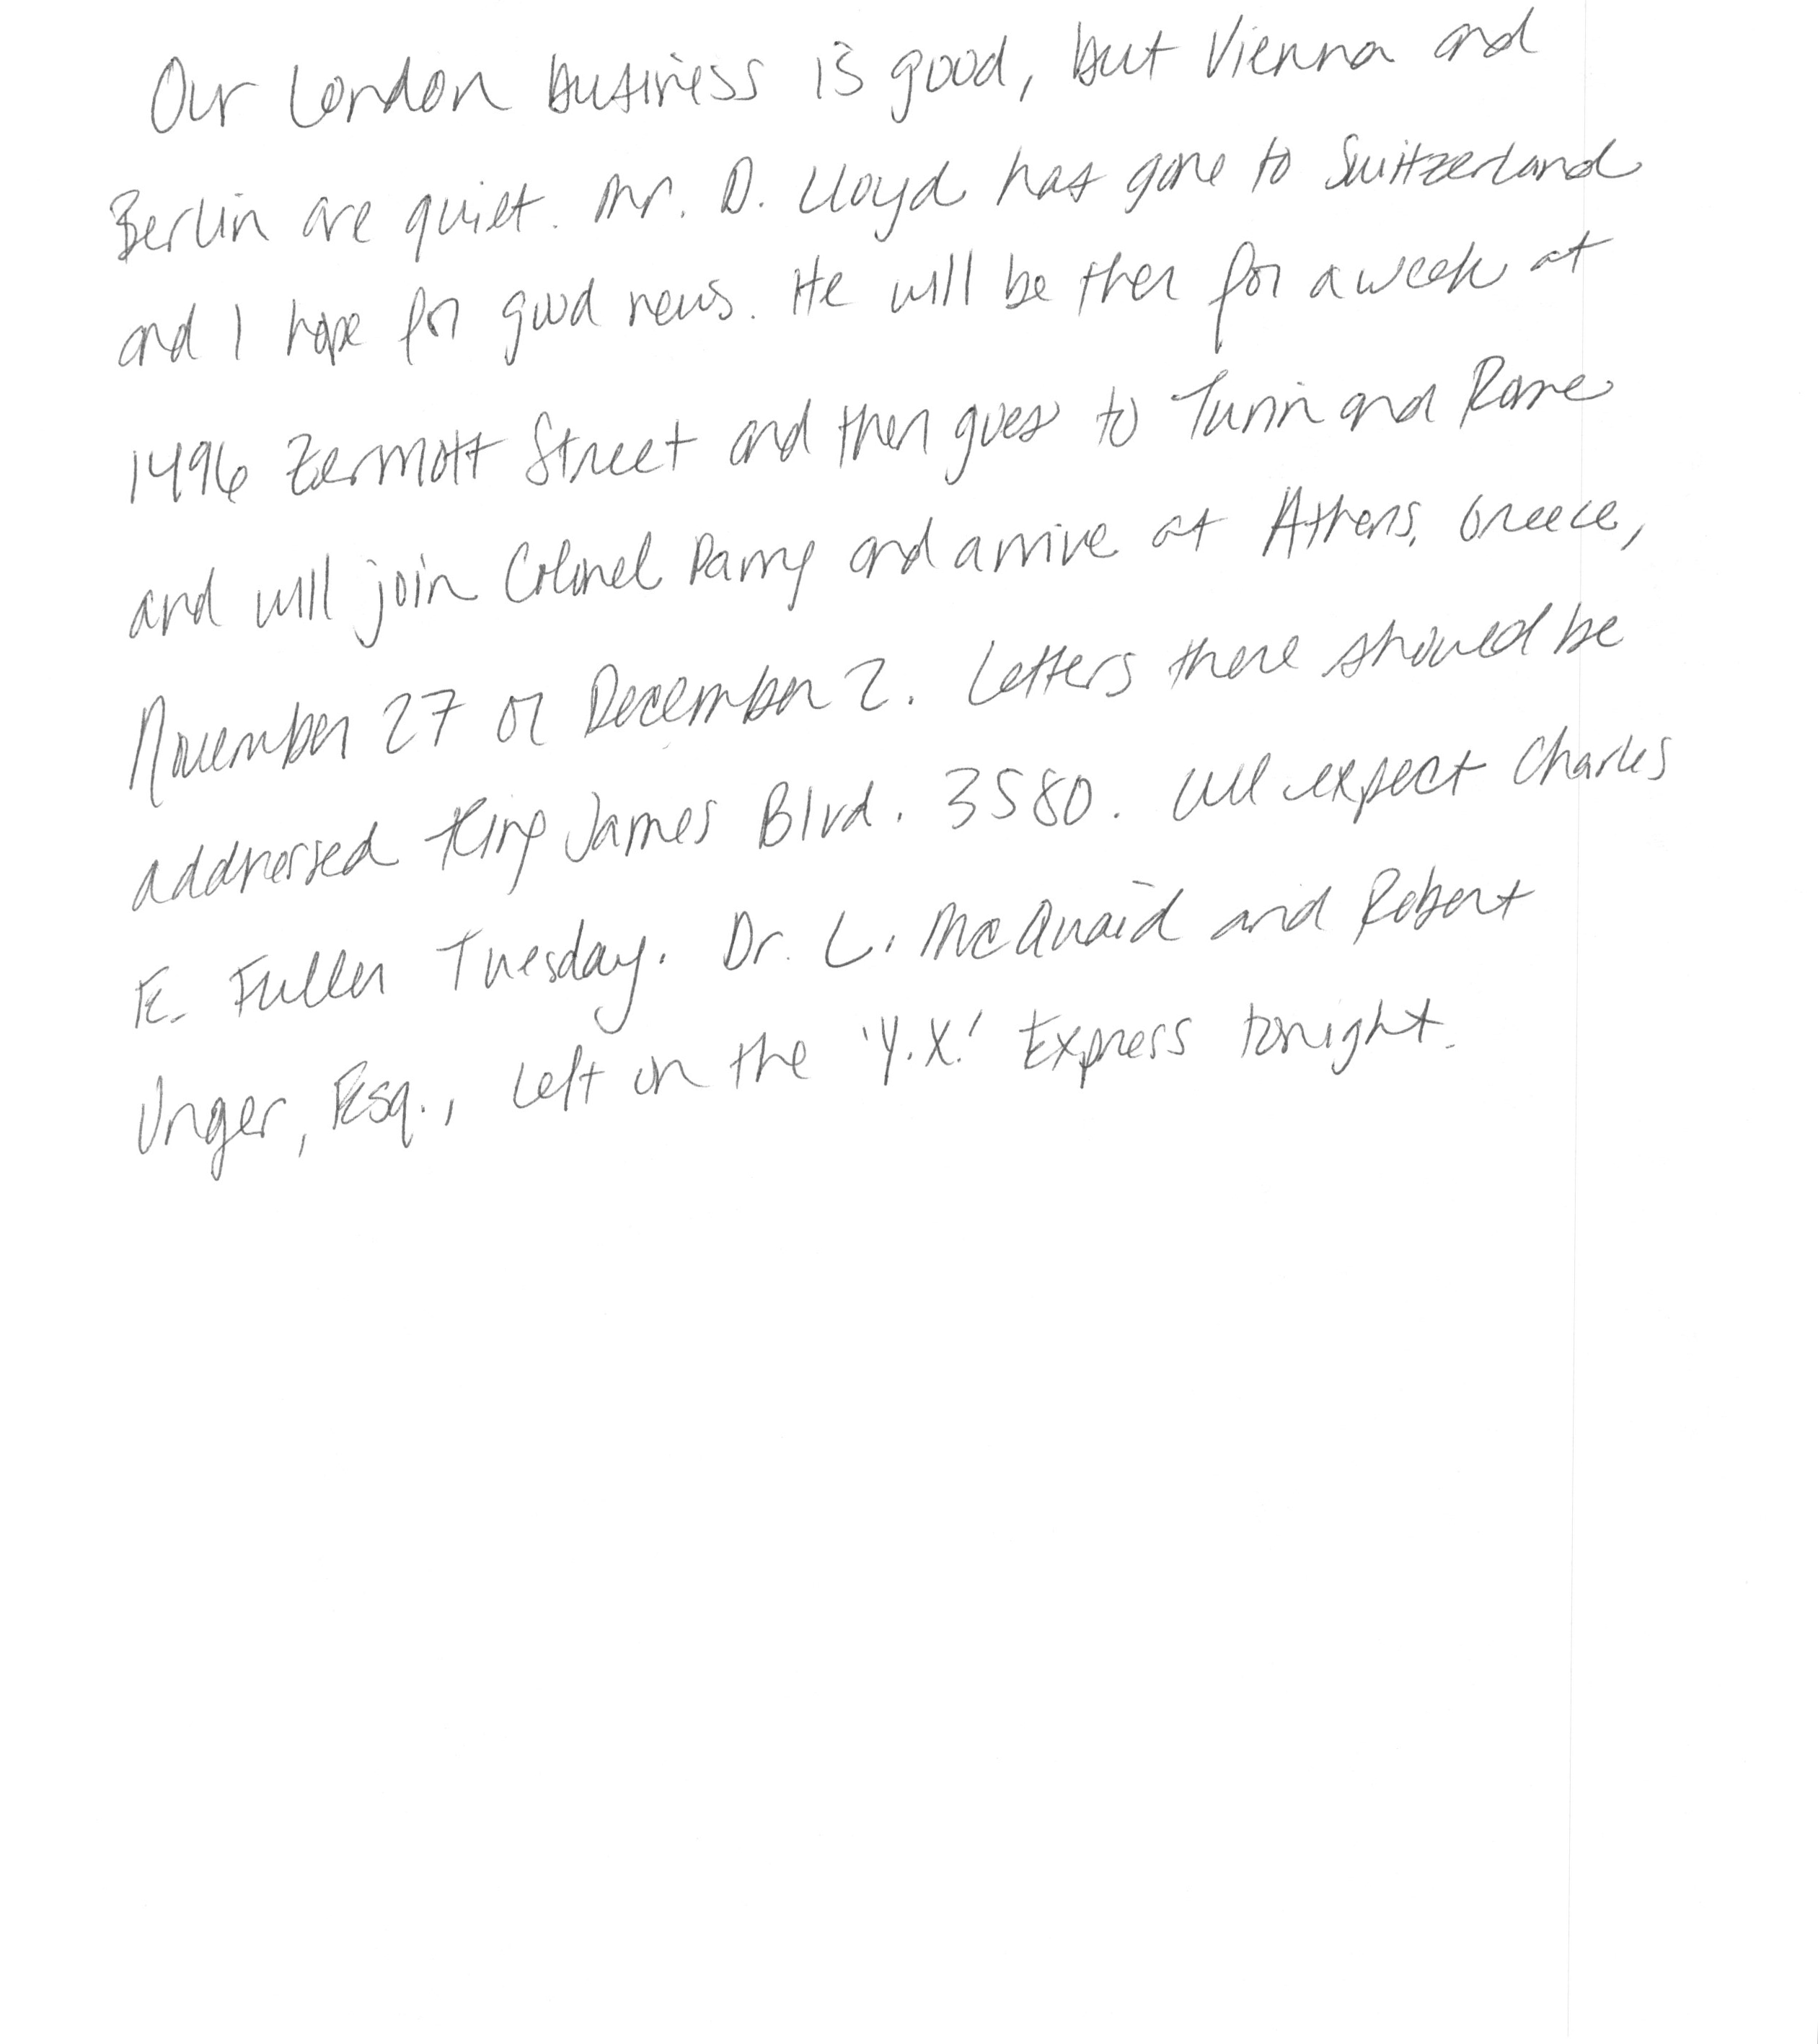 Our London business is good, but Vienna and
Berlin are quiet. Mr. D. Lloyd has gone to Switzerland
and I hope for good news. He will be ther for a week at
1496 Zermott Street and then goes to Turin and Rome
and will join Colonel Parry and arrive at Athens, Greece,
November 27 or December 2. Letters there should be
addressed King James Blvd. 3580. We expect Charles
E. Fuller Tuesday. Dr. L. McQuaid and Robert
Unger, Esq., left on the 'Y.X.' Express tonight.